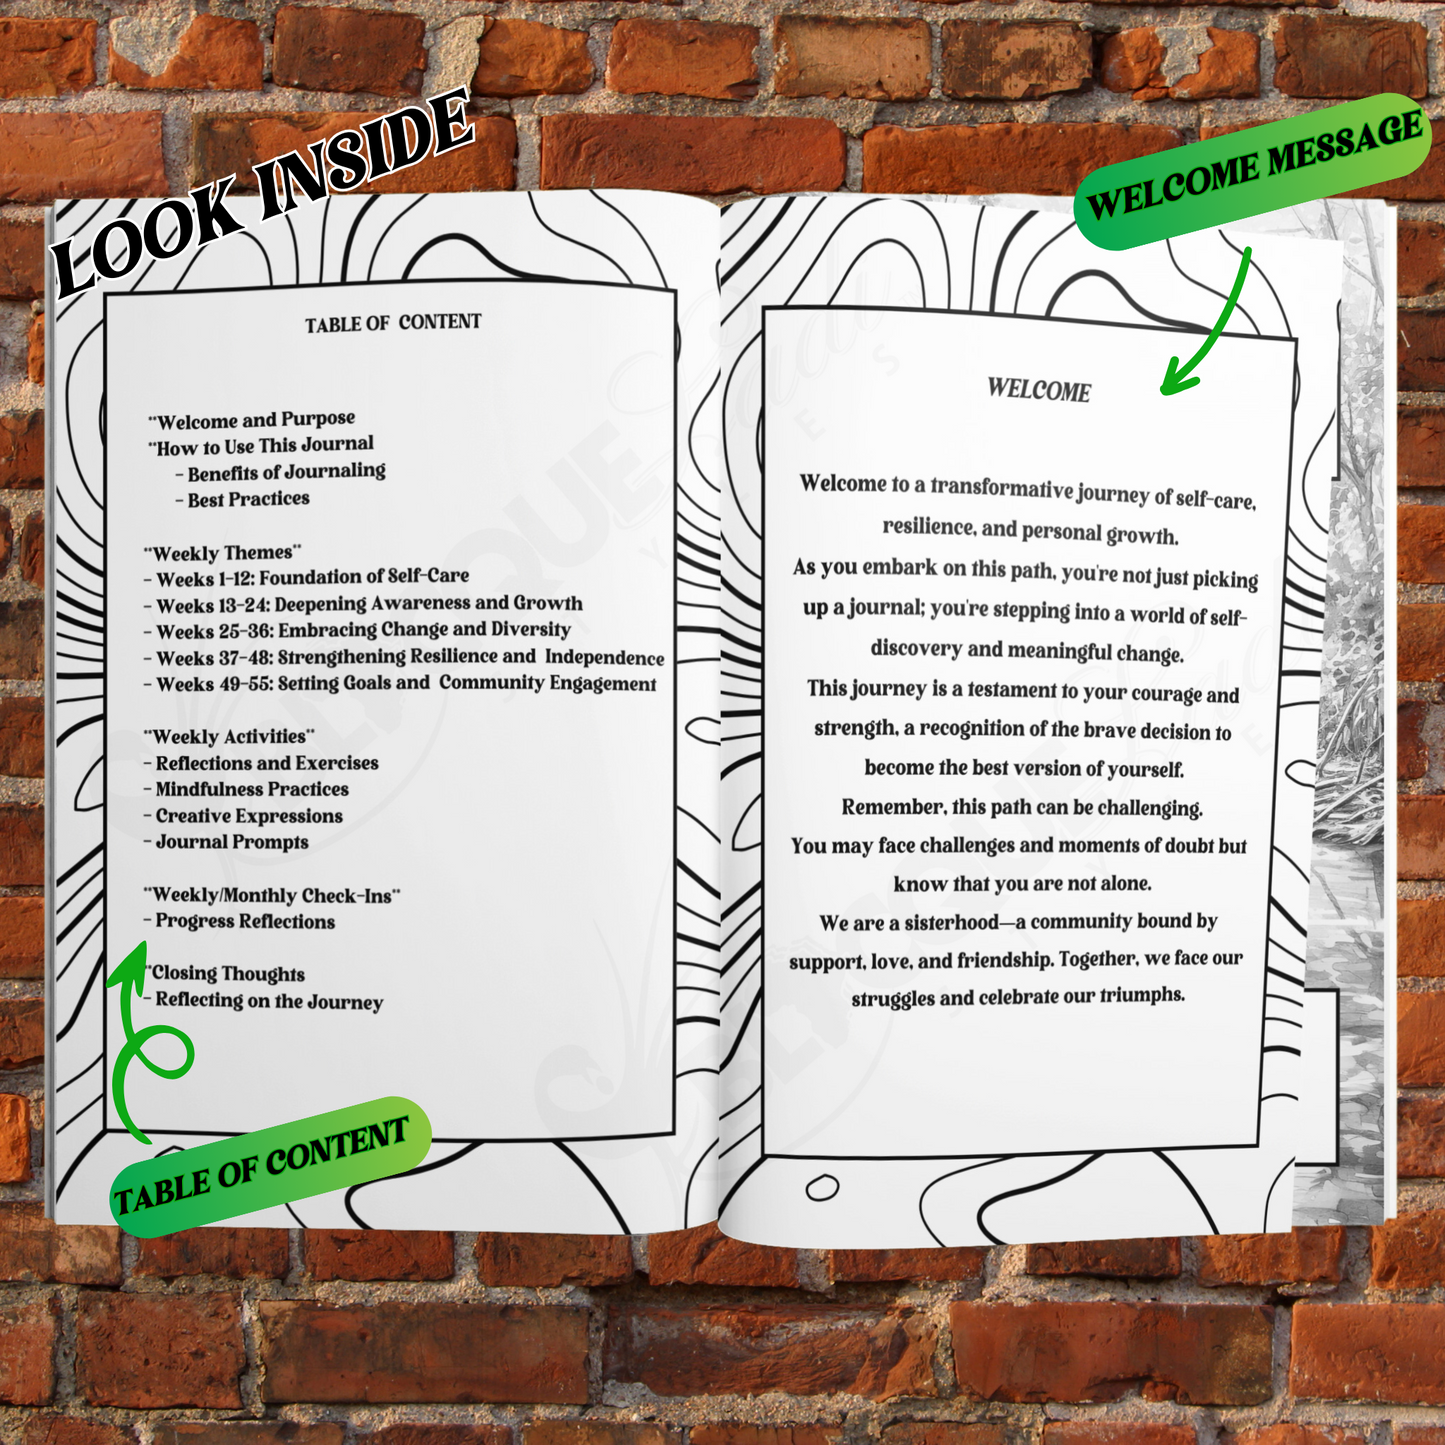 LOOK INSIDE
WELCOME MESSAGE
TABLE OF CONTENT
"Welcome and Purpose
"How to Use This Journal
- Benefits of Journaling
- Best Practices
"Weekly Themes"
- Weeks 1-12: Foundation of Self-Care
- Weeks 13-24: Deepening Awareness and Growth
- Weeks 25-36: Embracing Change and Diversity
- Weeks 37-48: Strengthening Resilience and Independence
- Weeks 49-55: Setting Goals and Community Engagement
"Weekly Activities"
- Reflections and Exercises
- Mindfulness Practices
- Creative Expressions
- Journal Prompts
"Weekly/Monthly Check-Ins"
- Progress Reflections
"Closing Thoughts
- Reflecting on the Journey
TABLE OF CONTENT
WELCOME
Welcome to a transformative journey of self-care,
resilience, and personal growth.
As you embark on this path, you're not just picking
up a journal; you're stepping into a world of self-
discovery and meaningful change.
This journey is a testament to your courage and
strength, a recognition of the brave decision to
become the best version of yourself.
Remember, this path can be challenging.
You may face challenges and moments of doubt but
know that you are not alone.
We are a sisterhood—a community bound by
support, love, and friendship. Together, we face our
struggles and celebrate our triumphs.